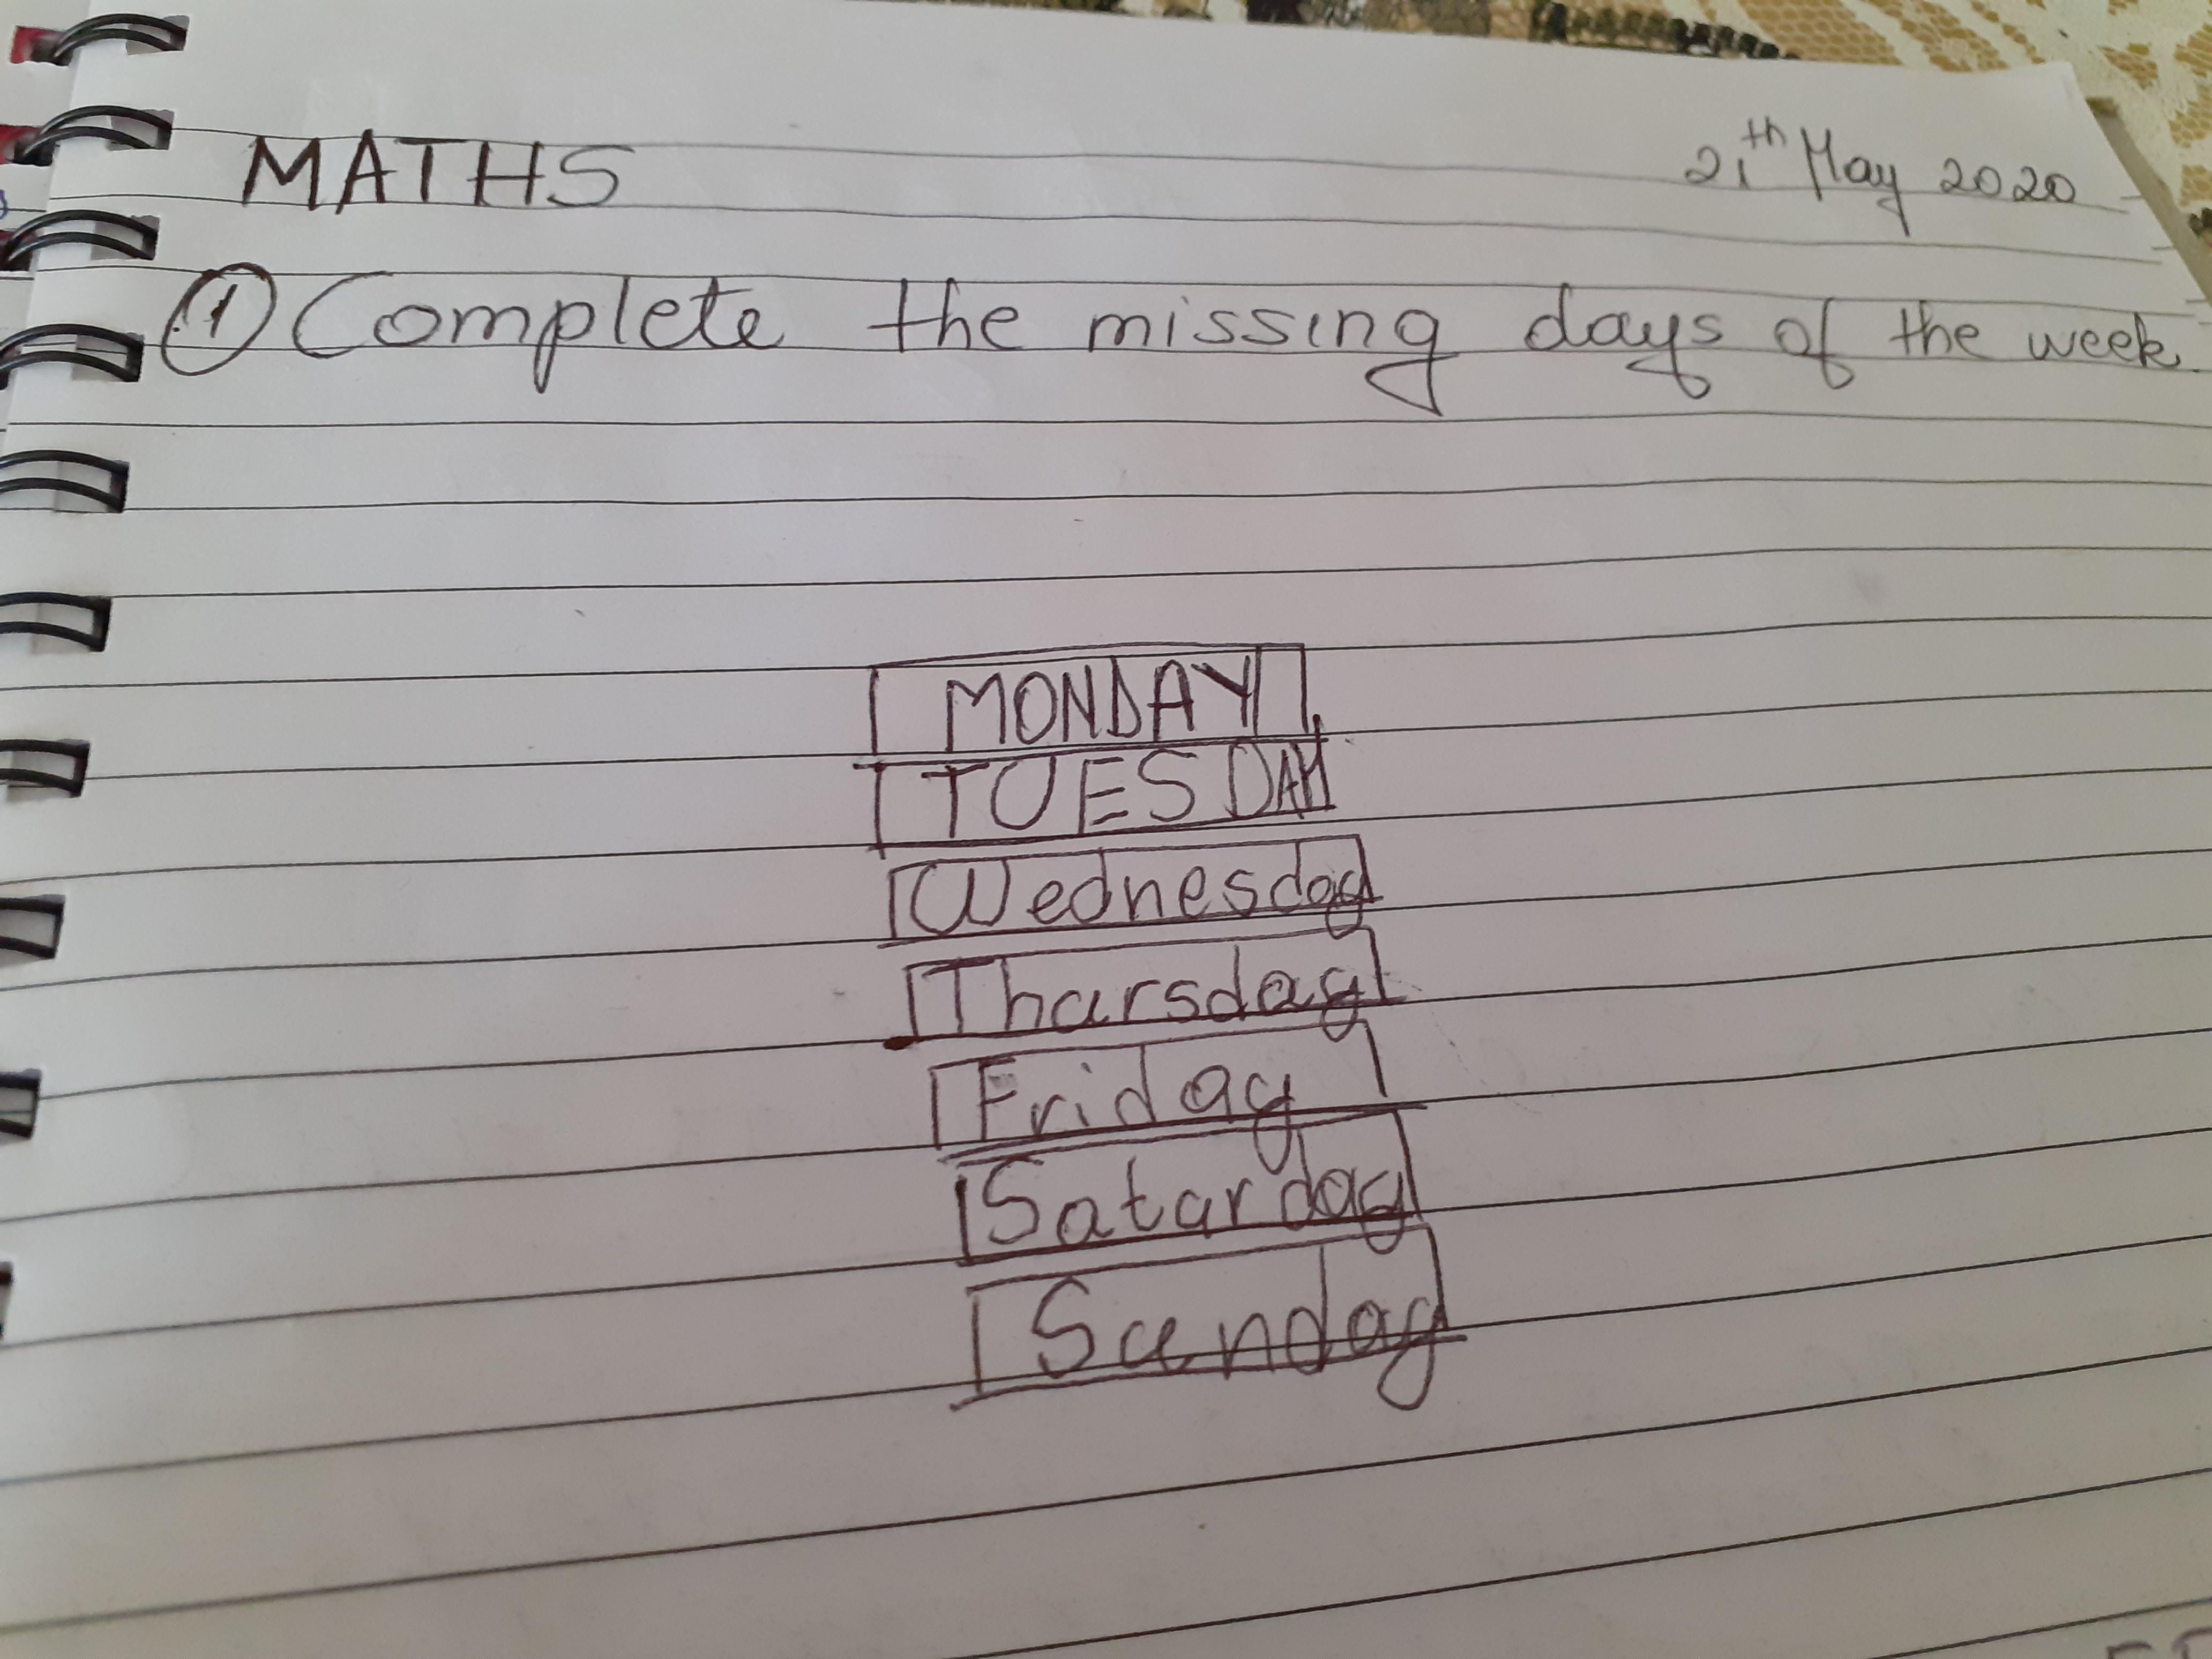 MATHS
21th May 2020
① Complete the missing days of the week.
MONDAY
TUESDAY
Wednesday
Thursday
Friday
Saturday
Sunday